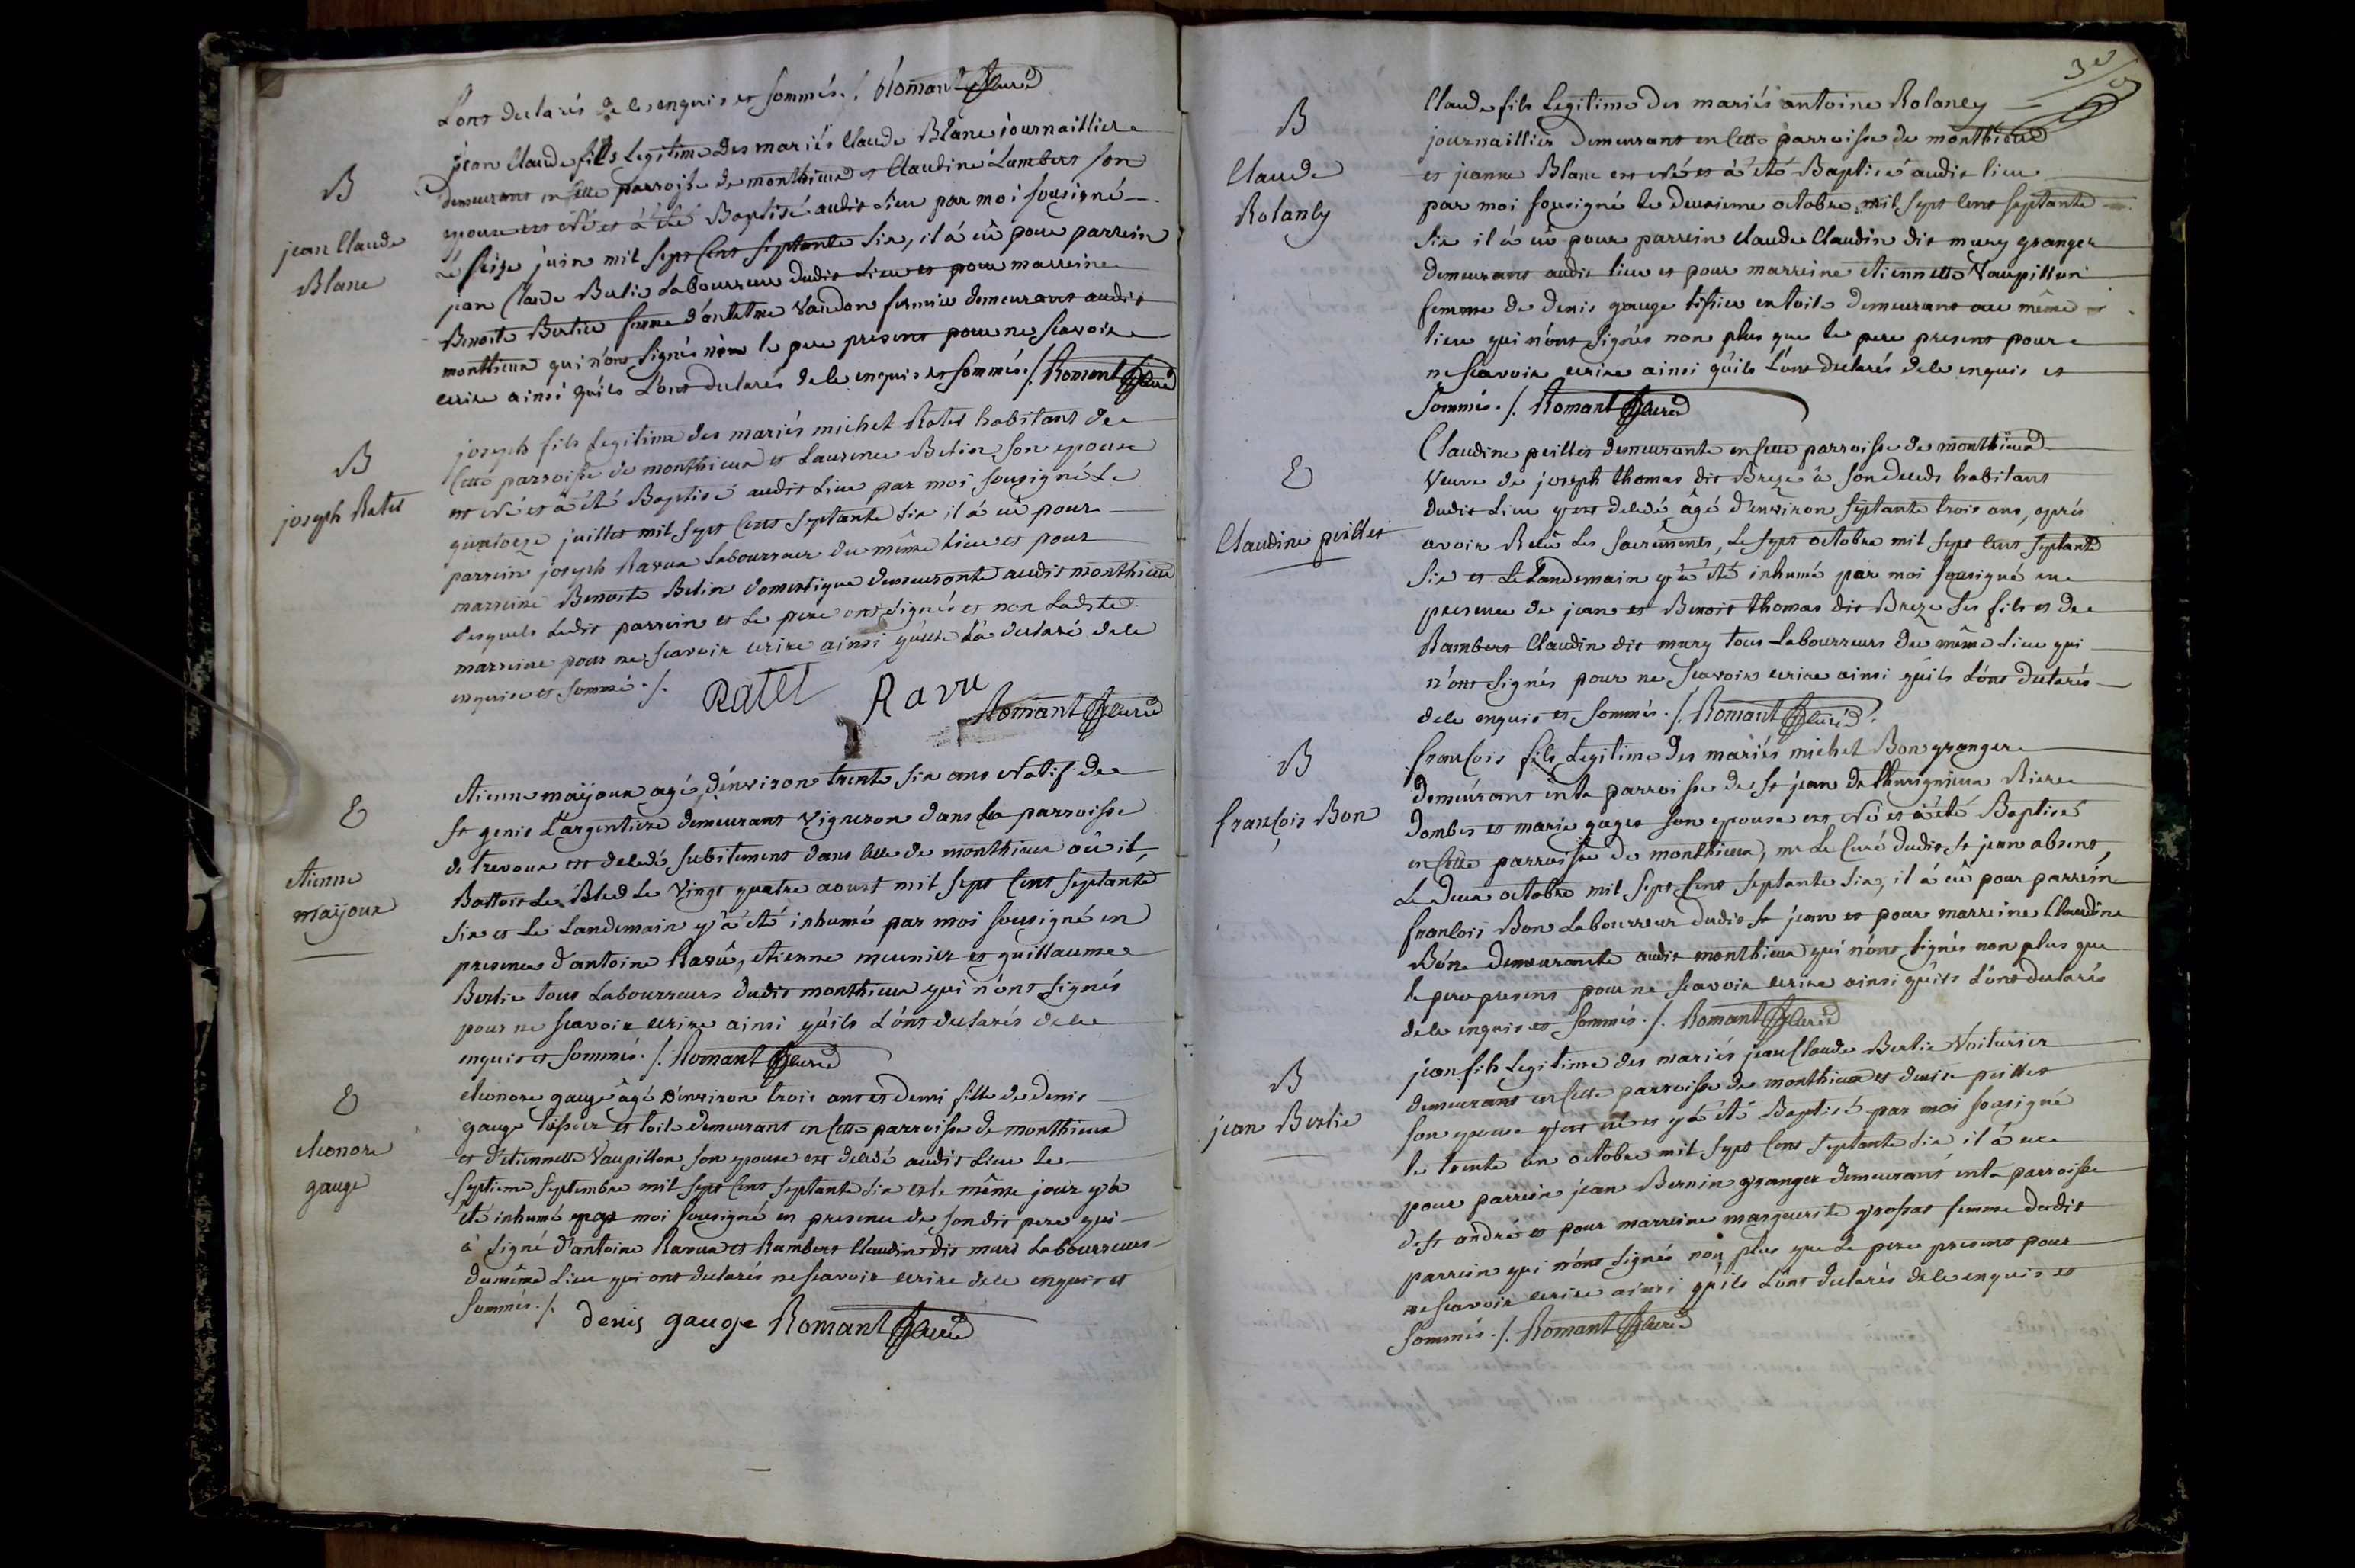 L'ont declarés de le enquis et sommés ./. Romant curé
B
jean Claude
Blanc
jean Claude fils Legitime des mariés Claude Blanc journaillier
demeurant en cette parroisse de monthieux et Claudine Lambert son
epouse est né et à été Baptisé audit Lieu par moi sousigné
Le seize juin mil sept cent septante six, il à eû pour parrein
jean Claude Berlie Labourreur dudit Lieu et pour marreine
Benoite Berlie femme d'antoine Vardon fermier demeurant audit
monthieux qui n'ont signés non le pere present pour ne scavoir
ecrire ainsi qu'ils L'ont declarés de le enquis et sommés ./. Romant curé
B
joseph Ratet
joseph fils Legitime des mariés michel Ratet habitant de
cette parroisse de monthieux et Laurence Belin son epouse
est né et à été Baptisé audit Lieu par moi sousigné Le
quatorze juillet mil sept cent septante six il à eû pour
parrein joseph Ravux Labourreur du même Lieu et pour
marreine Benoite Belin domestique demeurante audit monthieux
desquels Ledit parrein et Le pere ont signés et non Ladite
marreine pour ne scavoir ecrire ainsi qu'elle L'a declaré de le
enquise et sommé ./.
Ratet Ravu
Romant curé
E
etienne
maÿoux
etienne maÿoux agé d'environ trente six ans Natif de
st genis L'argentiere demeurant Vigneron dans La parroisse
de trevoux est decedé subitement dans celle de monthieux où il
Battoit Le Bled Le Vingt quatre aoust mil sept cent septante
six et Le Landemain y à été inhumé par moi sousigné en
presence d'antoine Ravû, etienne meunier et guillaume
Berlie tous Labourreurs dudit monthieux qui n'ont signés
pour ne scavoir ecrire ainsi qu'ils L'ont declarés de le
enquis et sommés ./. Romant curé
E
eleonore
gauge
eleonore gauge âgé d'environ trois ans et demi fille de denis
gauge tissier et toile demeurant en cette parroisse de monthieux
et d'etiennette Vaupillon son epouse est decedé audit Lieu Le
septieme septembre mil sept cent septante six et le même jour y à
été inhumé par moi sousigné en presence de sondit pere qui
à signé d'antoine Ravux et Rambert Claudin dit mury Labourreurs
du même Lieu qui ont declarés ne scavoir ecrire de le enquis et
sommés ./. denis gauge Romant curé
B
Claude
Rolanly
Claude fils Legitime des mariés antoine Rolanly
journaillier demeurant en cette parroisse de monthieux
et jeanne Blanc est né et à été Baptisé audit lieu
par moi sousigné le deuxieme octobre mil sept cent septante
six il à eû pour parrein Claude Claudin dit mury granger
demeurant audit lieu et pour marreine etiennette Vaupillon
femme de denis gauge tissier en toile demeurant au même
lieu qui n'ont signés non plus que le pere present pour
ne scavoir ecrire ainsi qu'ils L'ont declarés de le enquis et
sommés ./. Romant curé
E
Claudine peillet
Claudine peillet demeurante en cette parroisse de monthieux
Veuve de joseph thomas dit Breze à son deceds habitant
dudit Lieu y est decedé âgé d'environ septante trois ans, après
avoir Recû Les sacrements, Le sept octobre mil sept cent septante
six et Le Landemain y à été inhumé par moi sousigné en
presence de jean et Benoit thomas dit Breze ses fils et de
Rambert Claudin dit mury tous Labourreurs du même Lieu qui
n'ont signés pour ne scavoir ecrire ainsi qu'ils L'ont declarés
de le enquis et sommés ./. Romant curé
B
françois Bon
francois fils Legitime des mariés michel Bon granger
demeurant en la parroisse de st jean de thurignieux Riere
Dombes et marie gaget son epouse est né et à été Baptisé
en cette parroisse de monthieux, mr Le Curé dudit st jean absent,
Le deux octobre mil sept cent septante six, il à eû pour parrein
francois Bon Labourreur dudit st jean et pour marreine Claudine
Bon demeurante audit monthieux qui n'ont signés non plus que
le pere present pour ne scavoir ecrire ainsi qu'ils L'ont declarés
de le enquis et sommés ./. Romant curé
B
jean Berlie
jean fils Legitime des mariés jean Claude Berlie Voiturier
demeurant en cette parroisse de monthieux et denise peillet
son epouse y est né et y à été Baptisé par moi sousigné
le trente un octobre mil sept cent septante six il à eu
pour parrein jean Bernin granger demeurant en la parroisse
de st andré et pour marreine marguerite grossat femme dudit
parrein qui n'ont signés non plus que Le pere present pour
ne scavoir ecrire ainsi qu'ils L'ont declarés de le enquis et
sommés ./. Romant curé